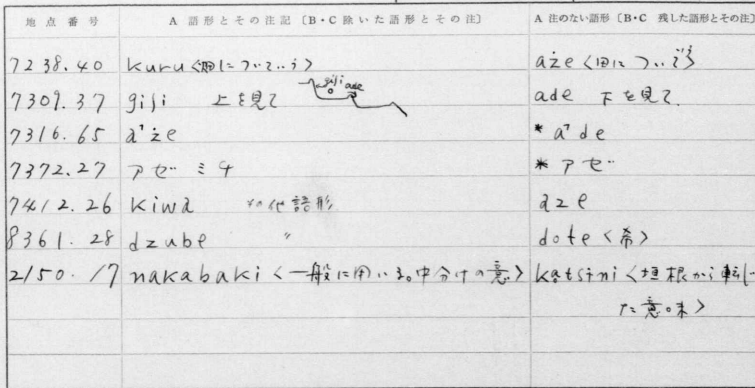 地点番号 A 語形とその注記〔B・C 除いた語形とその注〕 A 注のない語形〔B・C 残した語形とその注〕
7238.40 kuru〈畑について〉 aʑe〈田について〉
7309.37 giʃi 上を見て giʃi ade ade 下を見て
7316.65 a˥ʑe * a˥de
7372.27 アゼミチ * アゼ
7412.26 kiwa その他語形 aze
8361.28 dzube 〃 dote〈希〉
2150.17 nakabaki〈一般に用いる。中分けの意〉 katsïni〈垣根から転じ
た意味〉